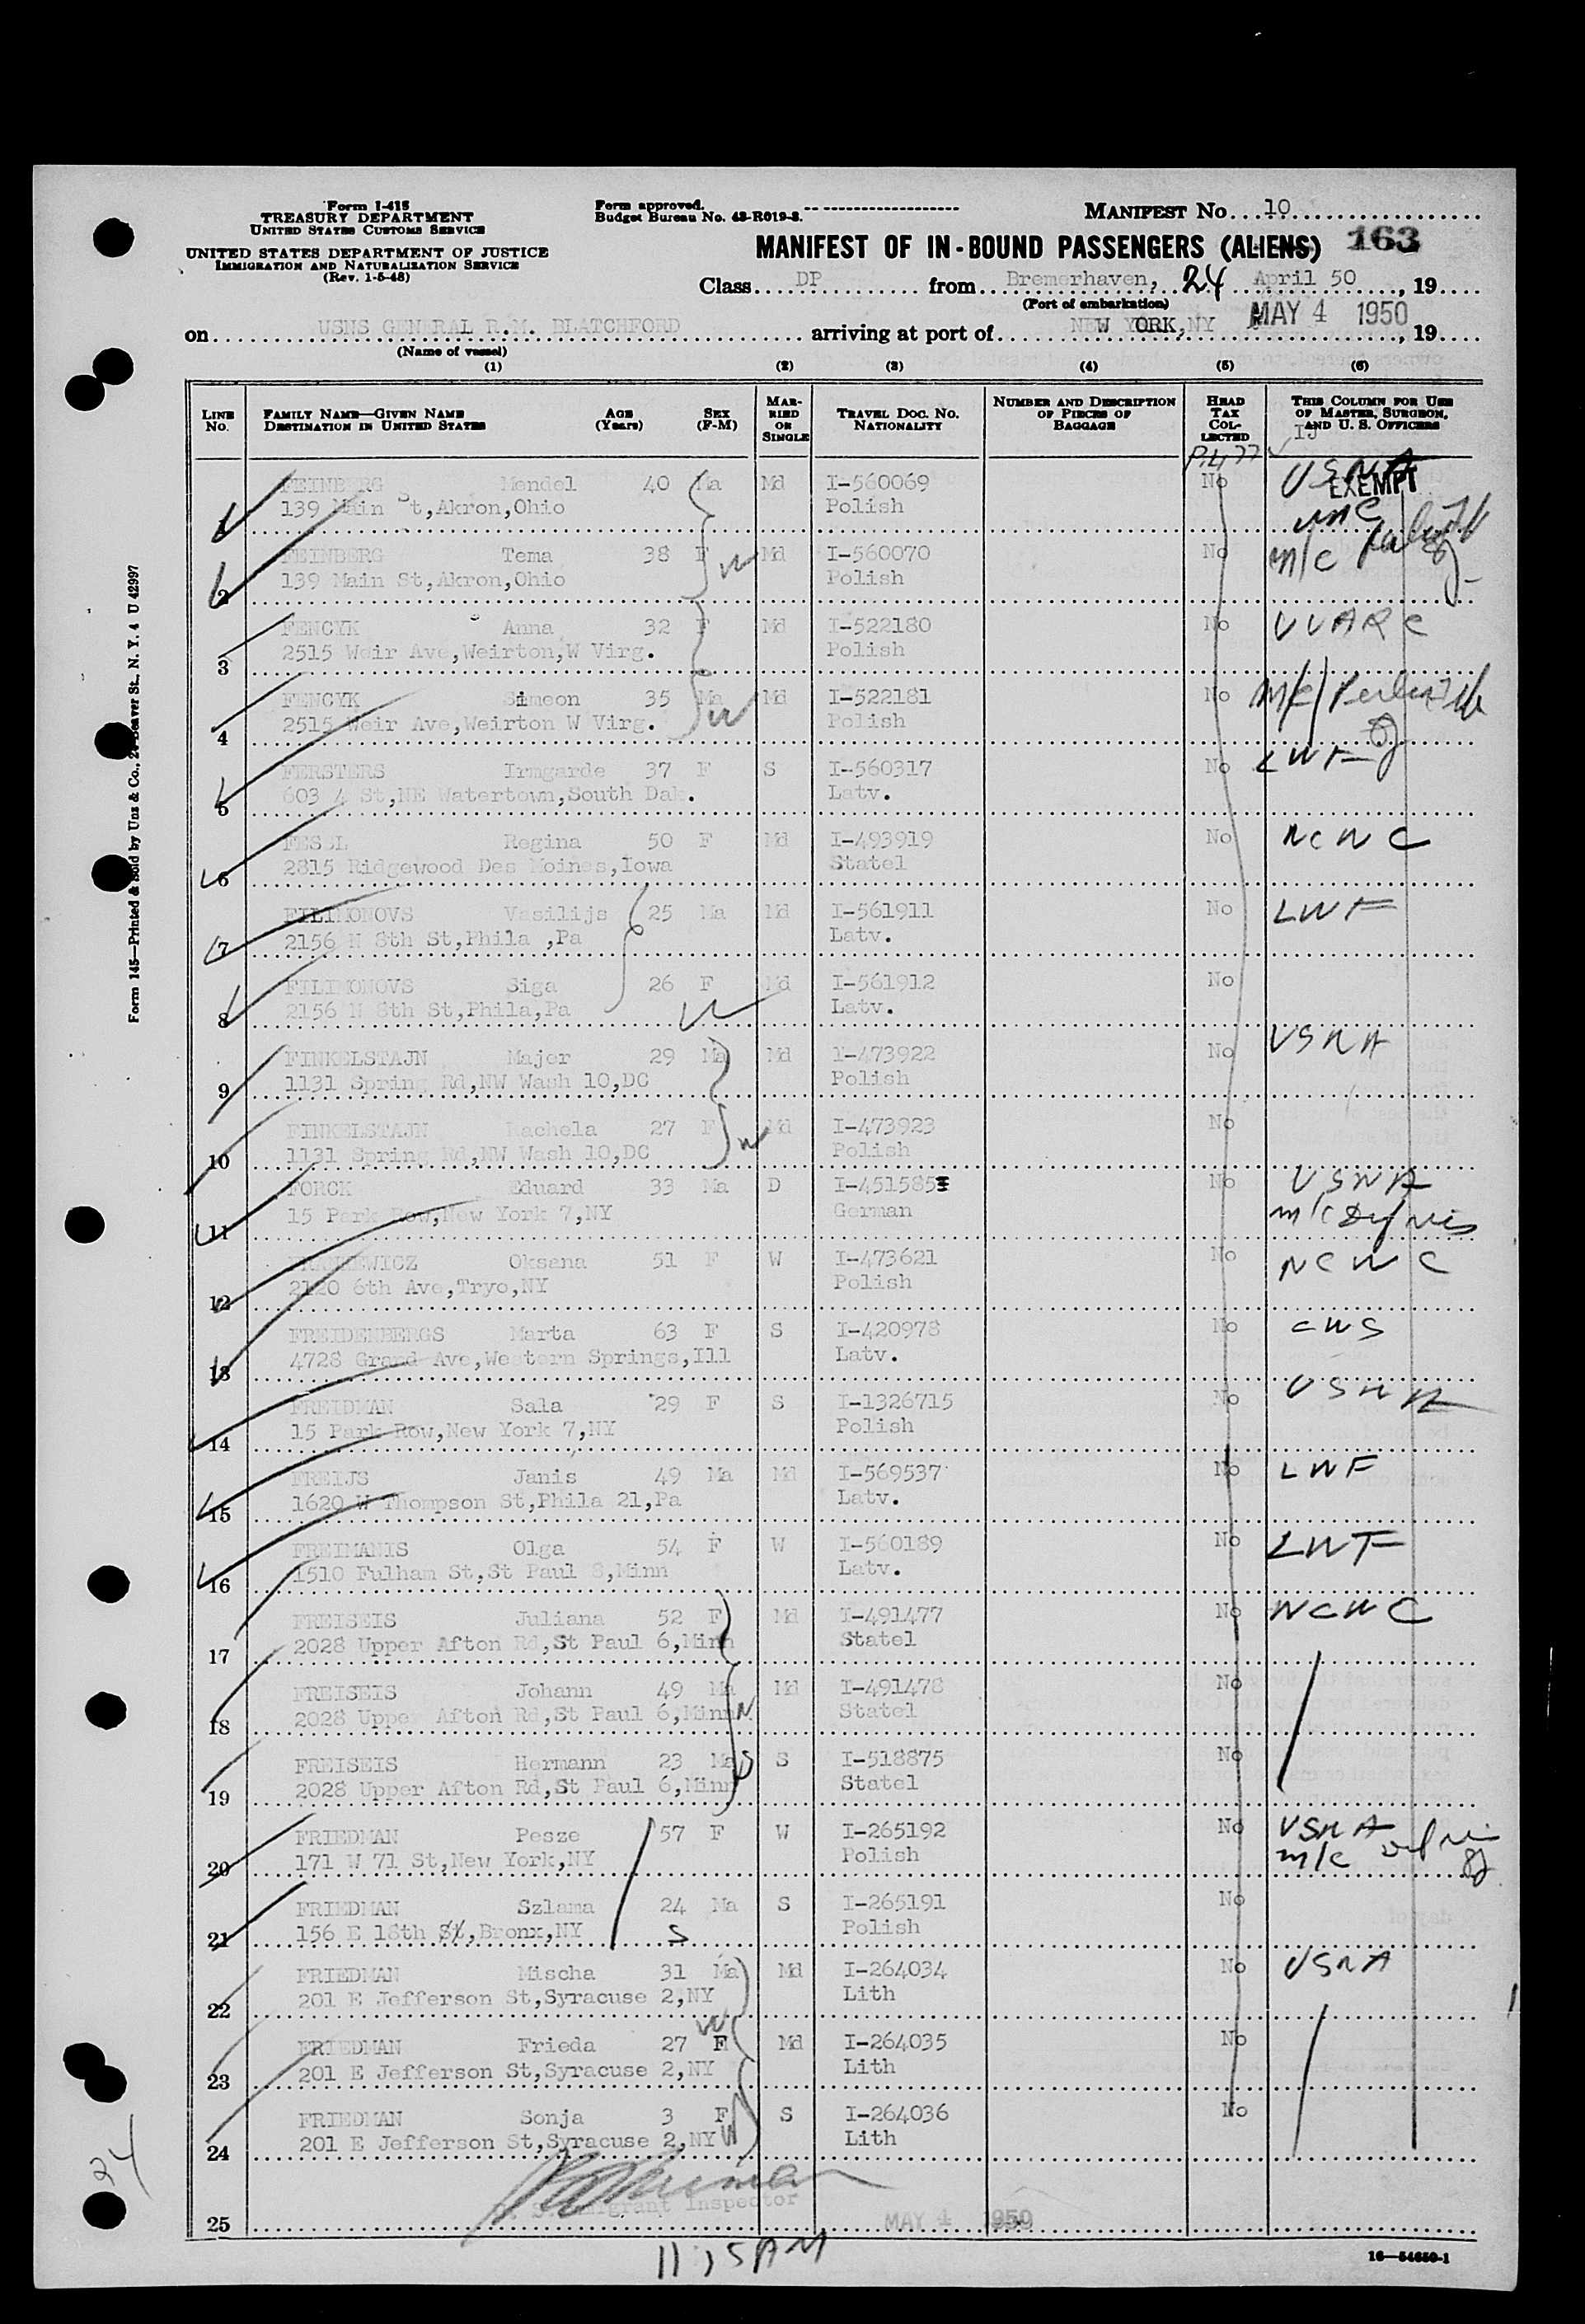 Form I-415
TREASURY DEPARTMENT
UNITED STATES CUSTOMS SERVICE
UNITED STATES DEPARTMENT OF JUSTICE
IMMIGRATION AND NATURALIZATION SERVICE
(Rev. 1-5-48)
Form approved.
Budget Bureau No. 43-R019-3.
MANIFEST No. 10
MANIFEST OF IN-BOUND PASSENGERS (ALIENS) 163
Class DP from Bremerhaven, 24 April 50, 19
(Port of embarkation)
on USNS GENERAL R.M. BLATCHFORD arriving at port of NEW YORK,NY MAY 4 1950, 19
(Name of vessel)
(1) (2) (3) (4) (5) (6)
LINE No. FAMILY NAME—GIVEN NAME DESTINATION IN UNITED STATES AGE (Years) SEX (F-M) MARRIED OR SINGLE TRAVEL DOC. No. NATIONALITY NUMBER AND DESCRIPTION OF PIECES OF BAGGAGE HEAD TAX COLLECTED THIS COLUMN FOR USE OF MASTER, SURGEON, AND U. S. OFFICERS
IJ
1 FEINBERG Mendel 40 Ma Md I-560069 No USNA EXEMPT
139 Main St,Akron,Ohio Polish
2 FEINBERG Tema 38 F Md I-560070 No m/c
139 Main St,Akron,Ohio Polish
3 FENCYK Anna 32 F Md I-522180 No UUARC
2515 Weir Ave,Weirton,W Virg. Polish
4 FENCYK Simeon 35 Ma Md I-522181 No m/c
2515 Weir Ave,Weirton W Virg. Polish
5 FERSTERS Irmgarde 37 F S I-560317 No LWF
603 4 St,NE Watertown,South Dak. Latv.
6 FESSL Regina 50 F Md I-493919 No NCWC
2815 Ridgewood Des Moines,Iowa Statel
7 FILIMONOVS Vasilijs 25 Ma Md I-561911 No LWF
2156 N 8th St,Phila ,Pa Latv.
8 FILIMONOVS Siga 26 F Md I-561912 No
2156 N 8th St,Phila,Pa Latv.
9 FINKELSTAJN Majer 29 Ma Md I-473922 No USNA
1131 Spring Rd,NW Wash 10,DC Polish
10 FINKELSTAJN Rachela 27 F Md I-473923 No
1131 Spring Rd,NW Wash 10,DC Polish
11 FORCK Eduard 33 Ma D I-451585 No USNA
15 Park Row,New York 7,NY German m/c
12 FRANKEWICZ Oksana 51 F W I-473621 No NCWC
2120 6th Ave,Tryo,NY Polish
13 FREIDENBERGS Marta 63 F S I-420978 No CWS
4728 Grand Ave,Western Springs,Ill Latv.
14 FREIDMAN Sala 29 F S I-1326715 No USNA
15 Park Row,New York 7,NY Polish
15 FREIJS Janis 49 Ma Md I-569537 No LWF
1620 W Thompson St,Phila 21,Pa Latv.
16 FREIMANIS Olga 54 F W I-560189 No LWF
1510 Fulham St,St Paul 8,Minn Latv.
17 FREISEIS Juliana 52 F Md I-491477 No NCWC
2028 Upper Afton Rd,St Paul 6,Minn Statel
18 FREISEIS Johann 49 Ma Md I-491478 No
2028 Upper Afton Rd,St Paul 6,Minn Statel
19 FREISEIS Hermann 23 Ma S I-518875 No
2028 Upper Afton Rd,St Paul 6,Minn Statel
20 FRIEDMAN Pesze 57 F W I-265192 No USNA
171 W 71 St,New York,NY Polish m/c
21 FRIEDMAN Szlama 24 Ma S I-265191 No
156 E 18th St,Bronx,NY S Polish
22 FRIEDMAN Mischa 31 Ma Md I-264034 No USNA
201 E Jefferson St,Syracuse 2,NY Lith
23 FRIEDMAN Frieda 27 F Md I-264035 No
201 E Jefferson St,Syracuse 2,NY Lith
24 FRIEDMAN Sonja 3 F S I-264036 No
201 E Jefferson St,Syracuse 2,NY Lith
Immigrant Inspector
25 MAY 4 1950
11:15 AM
16—54650-1
Form 145—Printed & Sold by Unz & Co., 24 Beaver St., N. Y. 4 U 42997
24